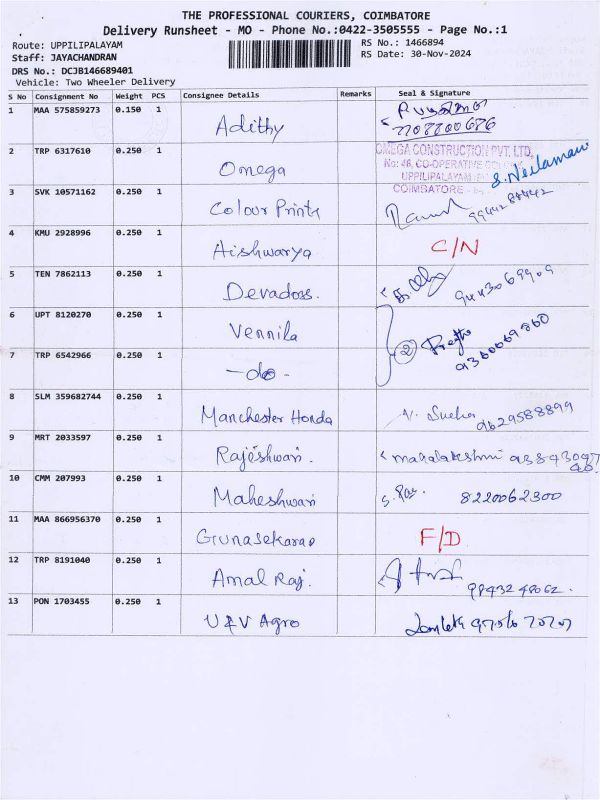 THE PROFESSIONAL COURIERS, COIMBATORE
Delivery Runsheet - MO - Phone No.:0422-3505555 - Page No.:1
Route: UPPILIPALAYAM
RS No.: 1466894
Staff: JAYACHANDRAN
RS Date: 30-Nov-2024
DRS No.: DCJB146689401
Vehicle: Two Wheeler Delivery
S No Consignment No Weight PCS Consignee Details Remarks Seal & Signature
1 MAA 575859273 0.150 1 Adithy
7708800686
2 TRP 6317610 0.250 1 Omega
OMEGA CONSTRUCTION PVT. LTD,
No: 46, CO-OPERATIVE
UPPILIPALAYAM
COIMBATORE
S. Neelamani
3 SVK 10571162 0.250 1 Colour Prints
4 KMU 2928996 0.250 1 Aishwarya C/N
5 TEN 7862113 0.250 1 Devadoss. 9443069909
6 UPT 8120270 0.250 1 Vennila
7 TRP 6542966 0.250 1 -do-
2 9360069860
8 SLM 359682744 0.250 1 Manchester Honda 9629588899
9 MRT 2033597 0.250 1 Rajeshwari. magalakshmi
10 CMM 207993 0.250 1 Maheshwari 8220062300
11 MAA 866956370 0.250 1 Gunasekaran F/D
12 TRP 8191040 0.250 1 Amal Raj.
13 PON 1703455 0.250 1 U&V Agro